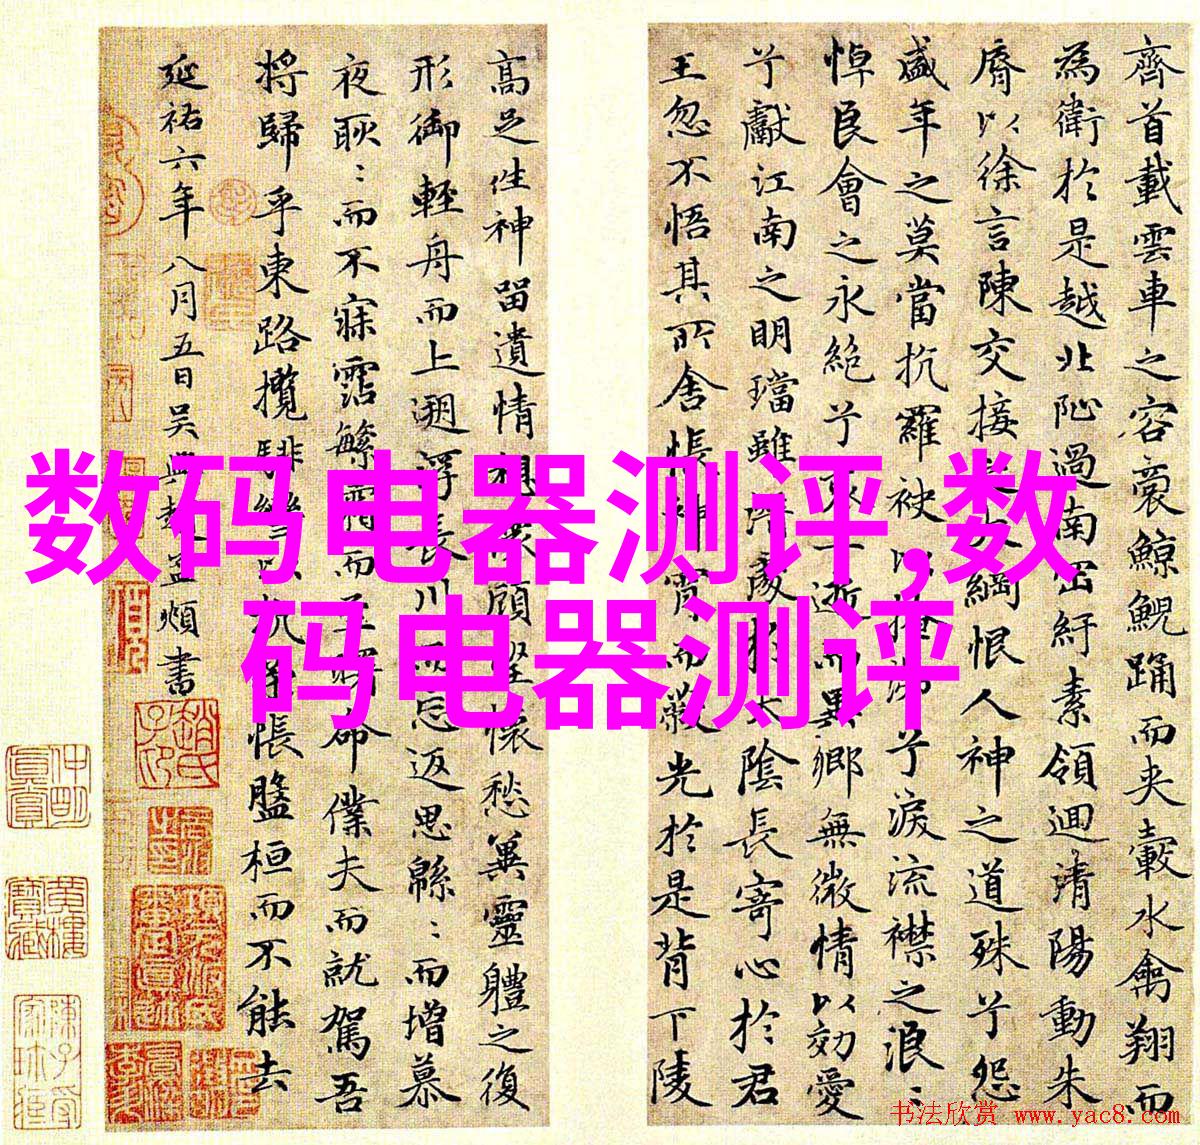 齊首載雲車之容裔鯨鯢踊而夾轂水禽翔而
為衛於是越北沚過南岡紆素領迴清陽動朱
脣以徐言陳交接之大綱恨人神之道殊兮怨
盛年之莫當抗羅袂以掩涕兮淚流襟之浪〻
悼良會之永絕兮哀一逝而異鄉無微情以効愛
兮獻江南之明璫雖潛處於太陰長寄心於君
王忽不悟其所舍悵神宵而蔽光於是背下陵
高足往神留遺情想像顧望懷愁冀靈體之復
形御輕舟而上遡浮長川而忘返思緜〻而增慕
夜耿〻而不寐霑繁霜而至曙命僕夫而就駕吾
將歸乎東路攬騑轡以抗策悵盤桓而不能去
延祐六年八月五日吴興趙孟頫書
数码电器测评,数
码电器测评
书法欣赏 www.yac8.com